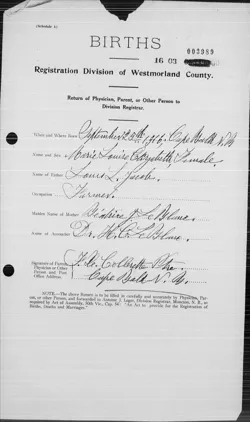 (Schedule A)
BIRTHS
16 03
003989
Registration Division of Westmorland County.
Return of Physician, Parent, or Other Person to
Division Registrar.
When and Where Born September 25th, Cape Bauld N.B.
Name and Sex Marie Louise Elizabeth Female
Name of Father Louis L. Jacob
Occupation Farmer
Maiden Name of Mother Béatrice J. LeBlanc
Name of Accoucher Dr. H. C. LeBlanc
Signature of Parent, Physician or Other Person and Post Office Address
Cape Bald N. B.
NOTE.—The above Return is to be filled in carefully and accurately by Physician, Parent
or Other Person, and forwarded to Antoine J. Leger, Division Registrar, Moncton, N. B., as
required by Act of Assembly, 50th Vic., Cap. 5
"An Act to provide for the Registration of
Births, Deaths and Marriages."